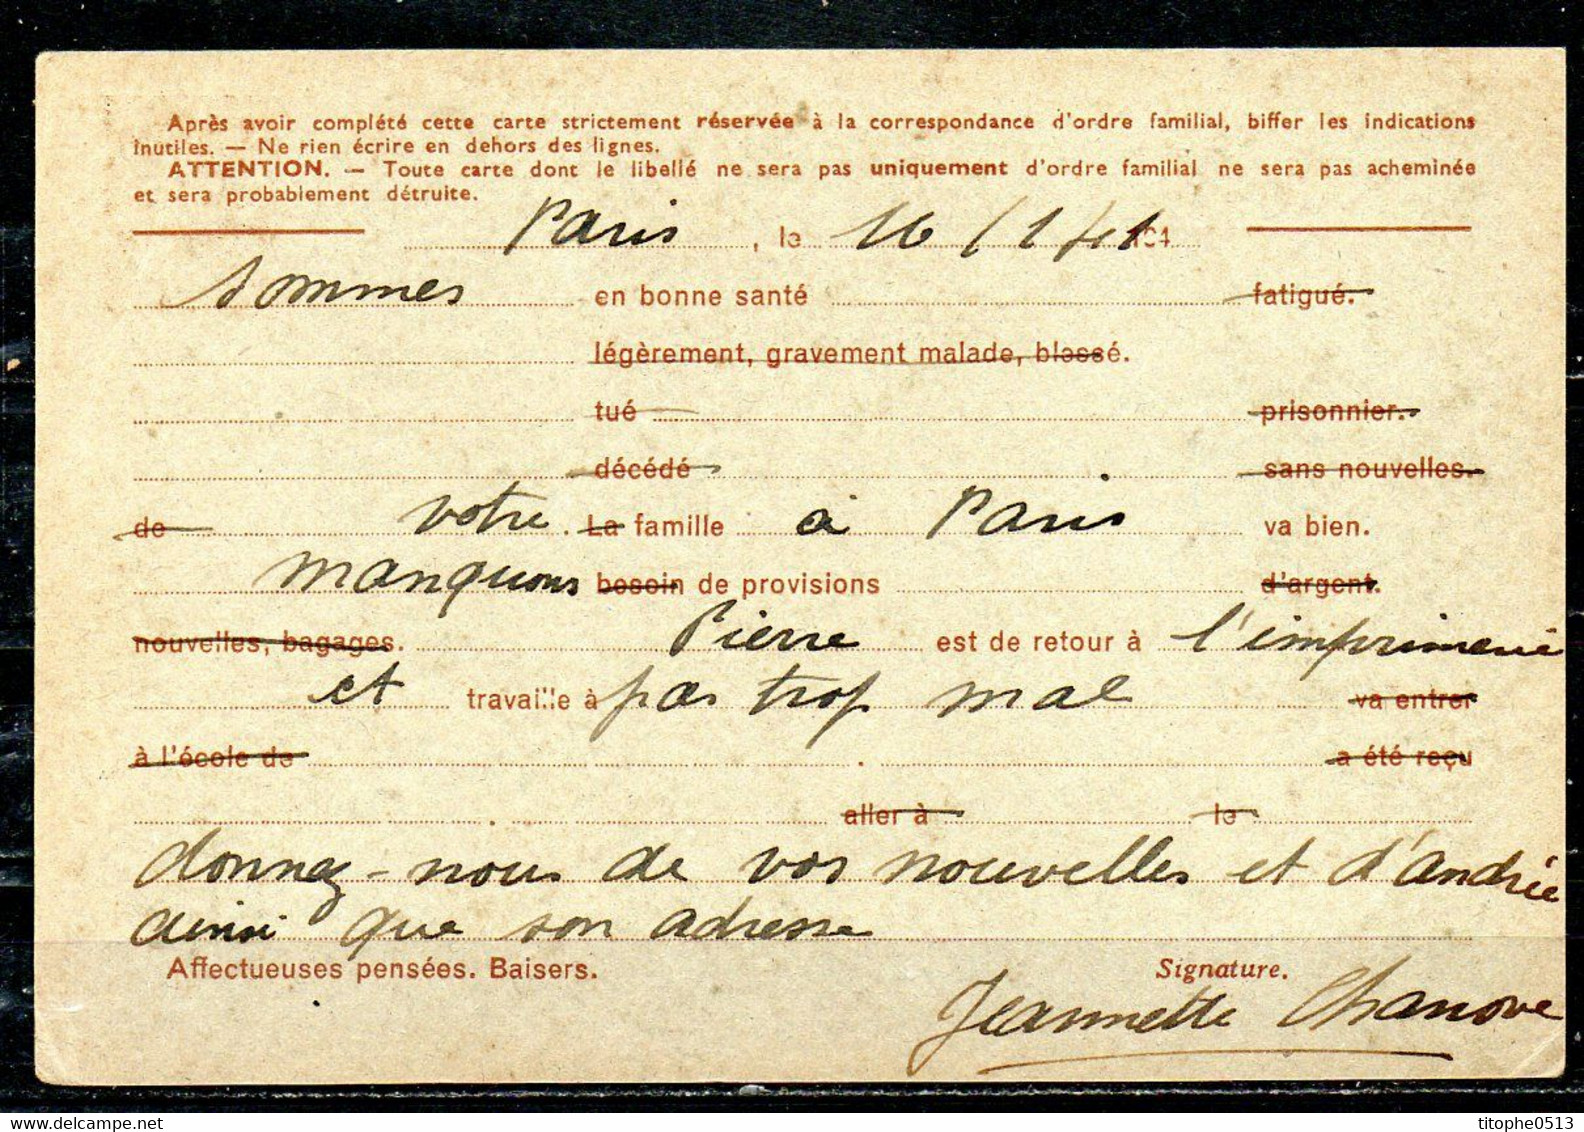 Après avoir complété cette carte strictement réservée à la correspondance d'ordre familial, biffer les indications
inutiles. — Ne rien écrire en dehors des lignes.
ATTENTION. — Toute carte dont le libellé ne sera pas uniquement d'ordre familial ne sera pas acheminée
et sera probablement détruite.
Paris, le 16/1/41 194
sommes en bonne santé fatigué.
légèrement, gravement malade, blessé.
tué prisonnier.
décédé sans nouvelles.
de votre. La famille à Paris va bien.
manquons besoin de provisions d'argent.
nouvelles, bagages. Pierre est de retour à l'imprimerie
et travaille à pas trop mal va entrer
à l'école de . a été reçu
. aller à le
donnez-nous de vos nouvelles et d'andrée
ainsi que son adresse
Affectueuses pensées. Baisers. Signature.
Jeannette Chanove
titophe0513